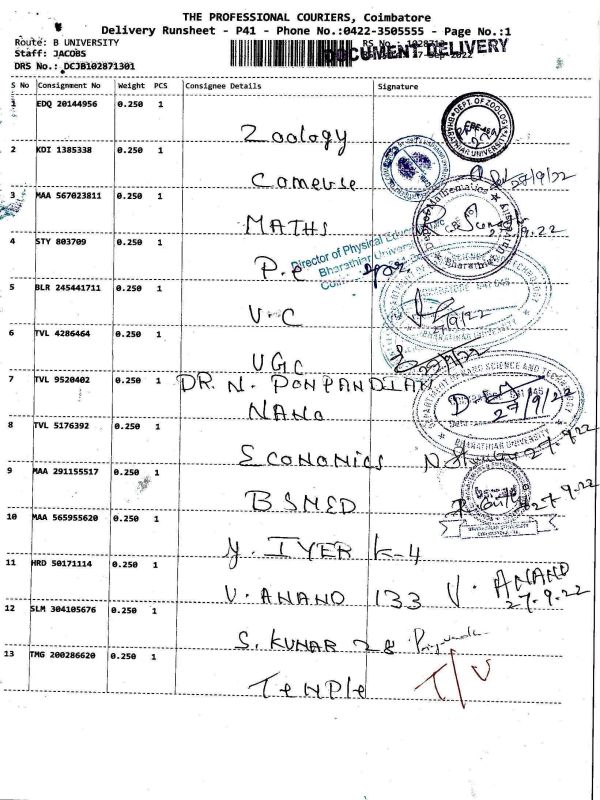 THE PROFESSIONAL COURIERS, Coimbatore
Delivery Runsheet - P41 - Phone No.:0422-3505555 - Page No.:1
Route: B UNIVERSITY
Staff: JACOBS
DRS No.: DCJB102871301
DOCUMENT DELIVERY
S No Consignment No Weight PCS Consignee Details Signature
1 EDQ 20144956 0.250 1 Zoology
DEPT. OF ZOOLOGY
BHARATHIAR UNIVERSITY
2 KDI 1385338 0.250 1 Comerse 27/9/22
3 MAA 567023811 0.250 1 MATHS 27.9.22
Mathematics
Bharathiar
4 STY 803709 0.250 1 P.e
Director of Physical
Bharathiar
5 BLR 245441711 0.250 1 V.C 27/9/22
BHARATHIAR UNIVERSITY
6 TVL 4286464 0.250 1 UGC 27/9/22
7 TVL 9520402 0.250 1 DR. N. PONPANDIAN
NANO 27/9/22
SCIENCE AND
BHARATHIAR UNIVERSITY
8 TVL 5176392 0.250 1 ECONOMICS 27.9.22
9 MAA 291155517 0.250 1 BSMED 27.9.22
10 MAA 565955620 0.250 1 Y. IYER K-4
11 HRD 50171114 0.250 1 V. ANAND 133 V. ANAND
27.9.22
12 SLM 304105676 0.250 1 S. KUMAR 28
13 TMG 200286620 0.250 1 TeMPle T/V